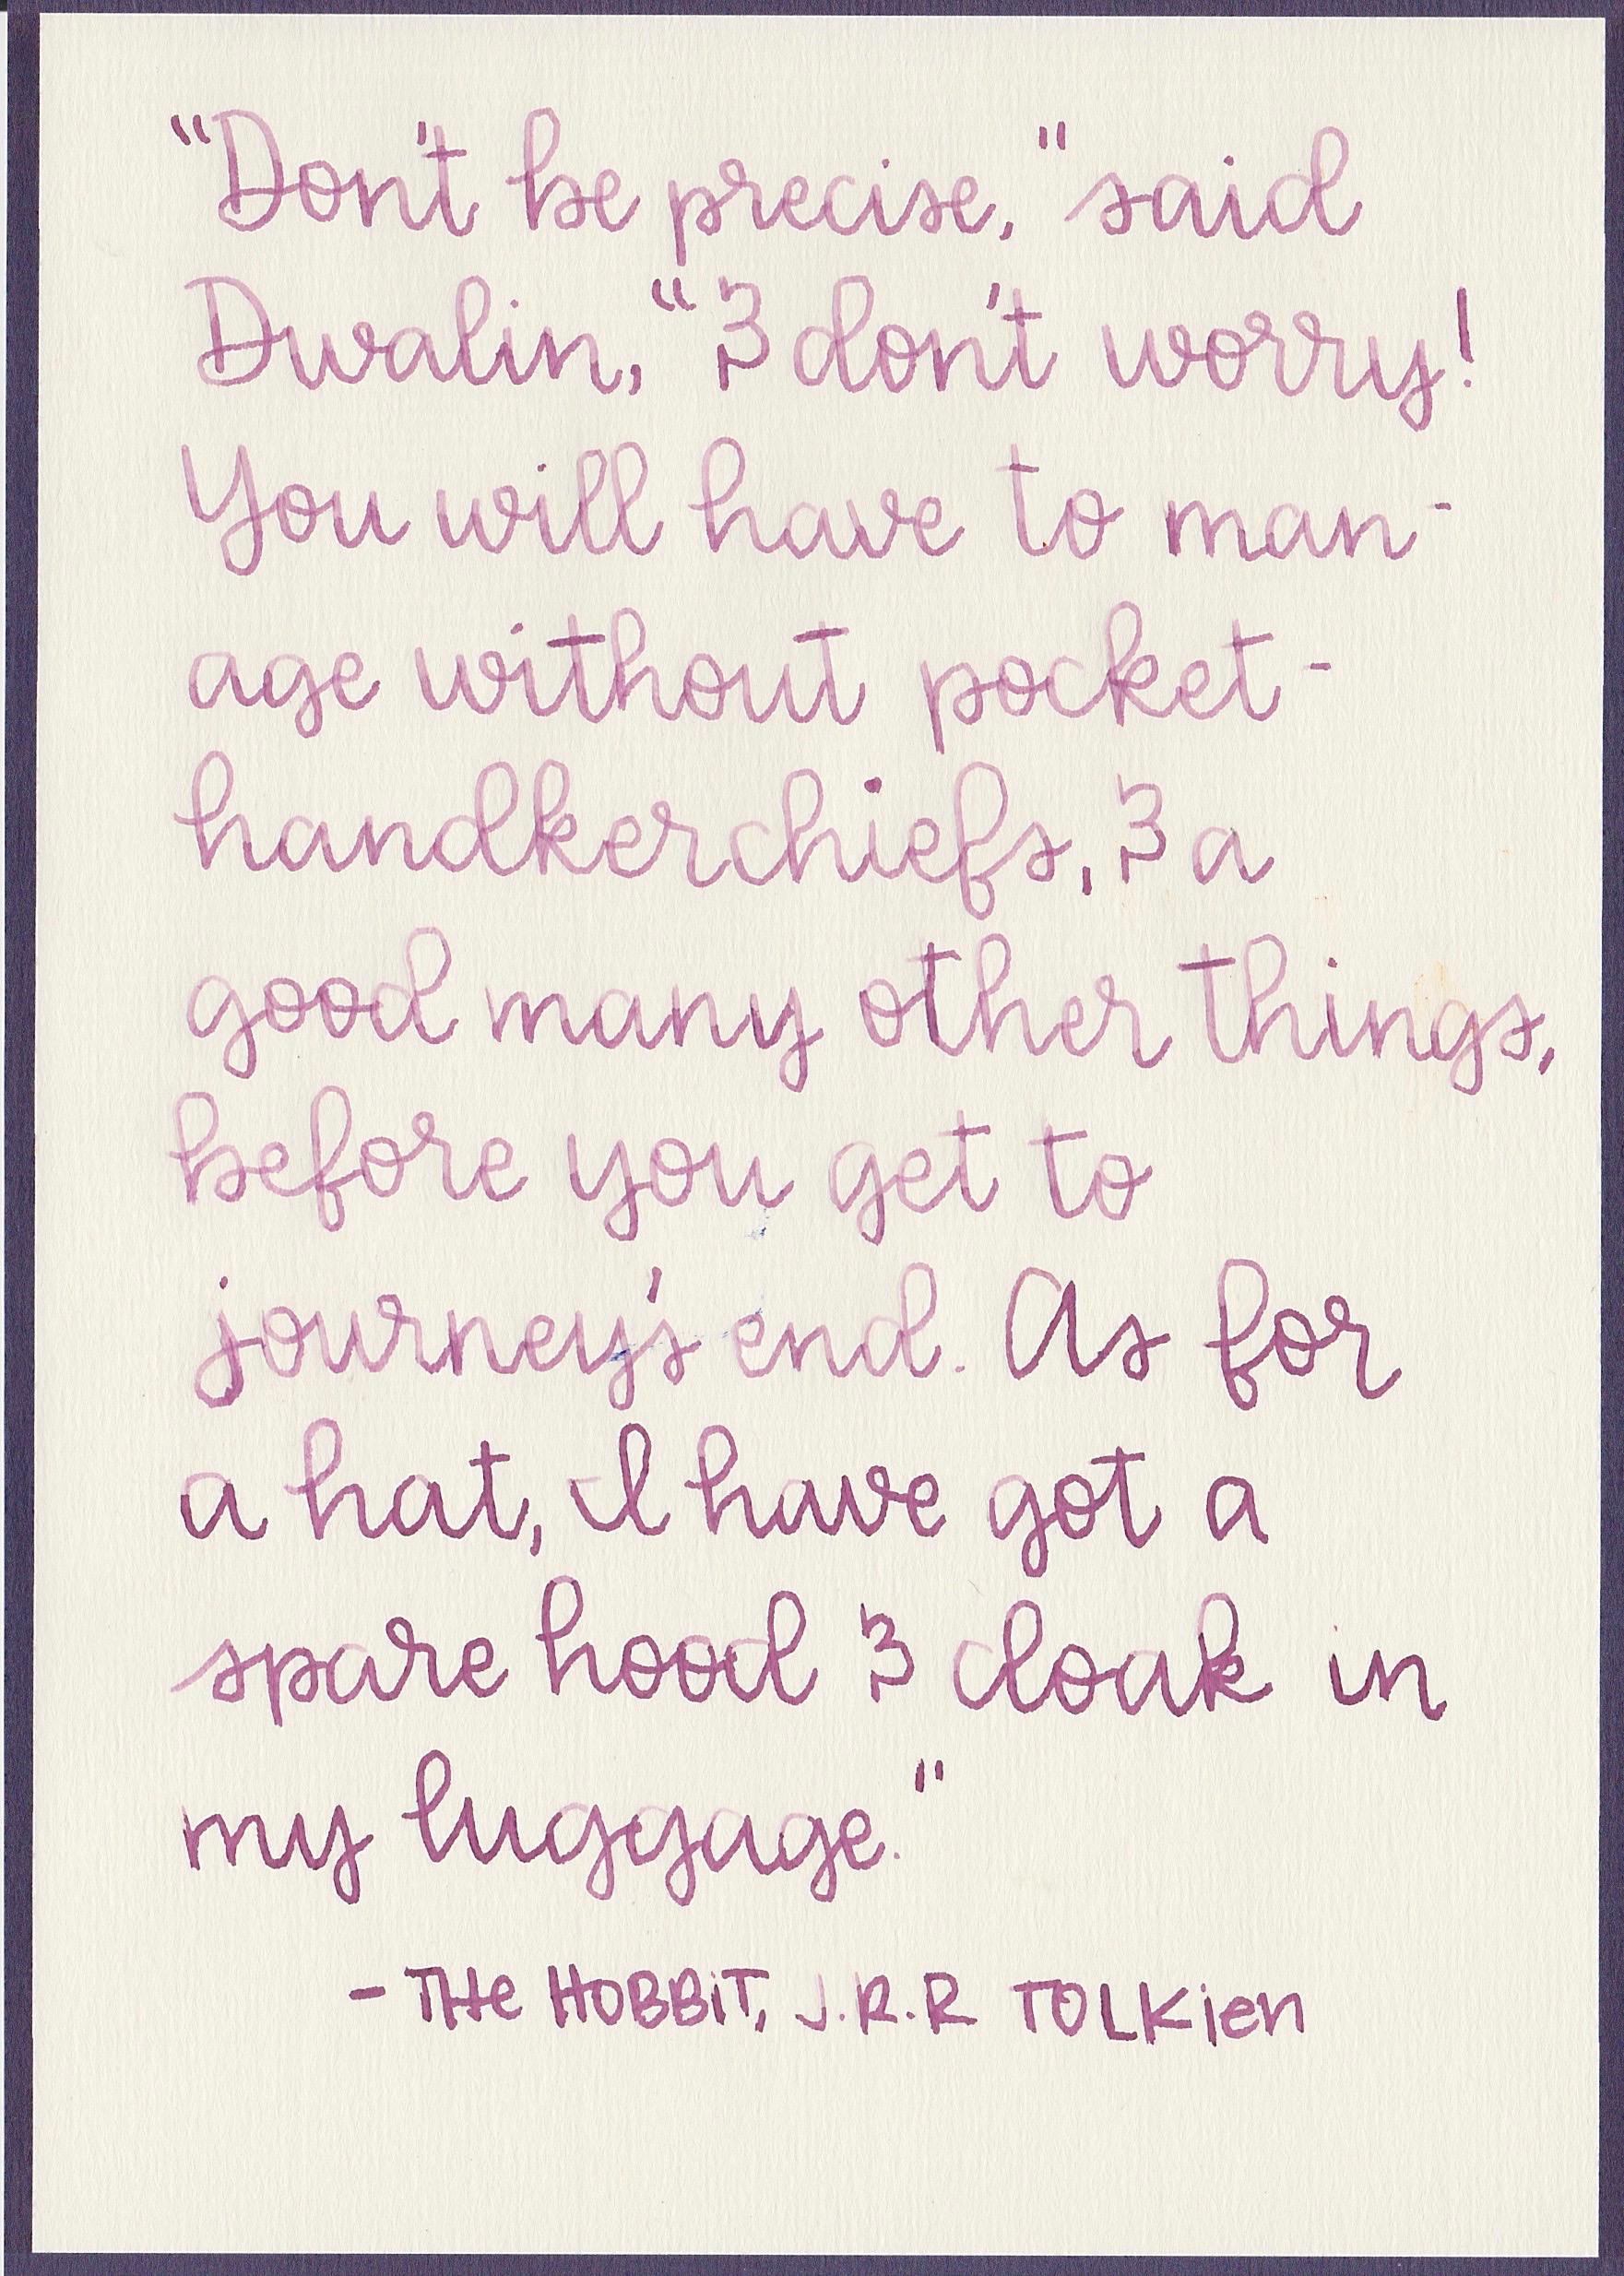 "Don't be precise," said
Dwalin, "& don't worry!
You will have to man-
age without pocket-
handkerchiefs, & a
good many other things,
before you get to
journey's end. As for
a hat, I have got a
spare hood & cloak in
my luggage."
- THe HOBBiT, J.R.R TOLKien